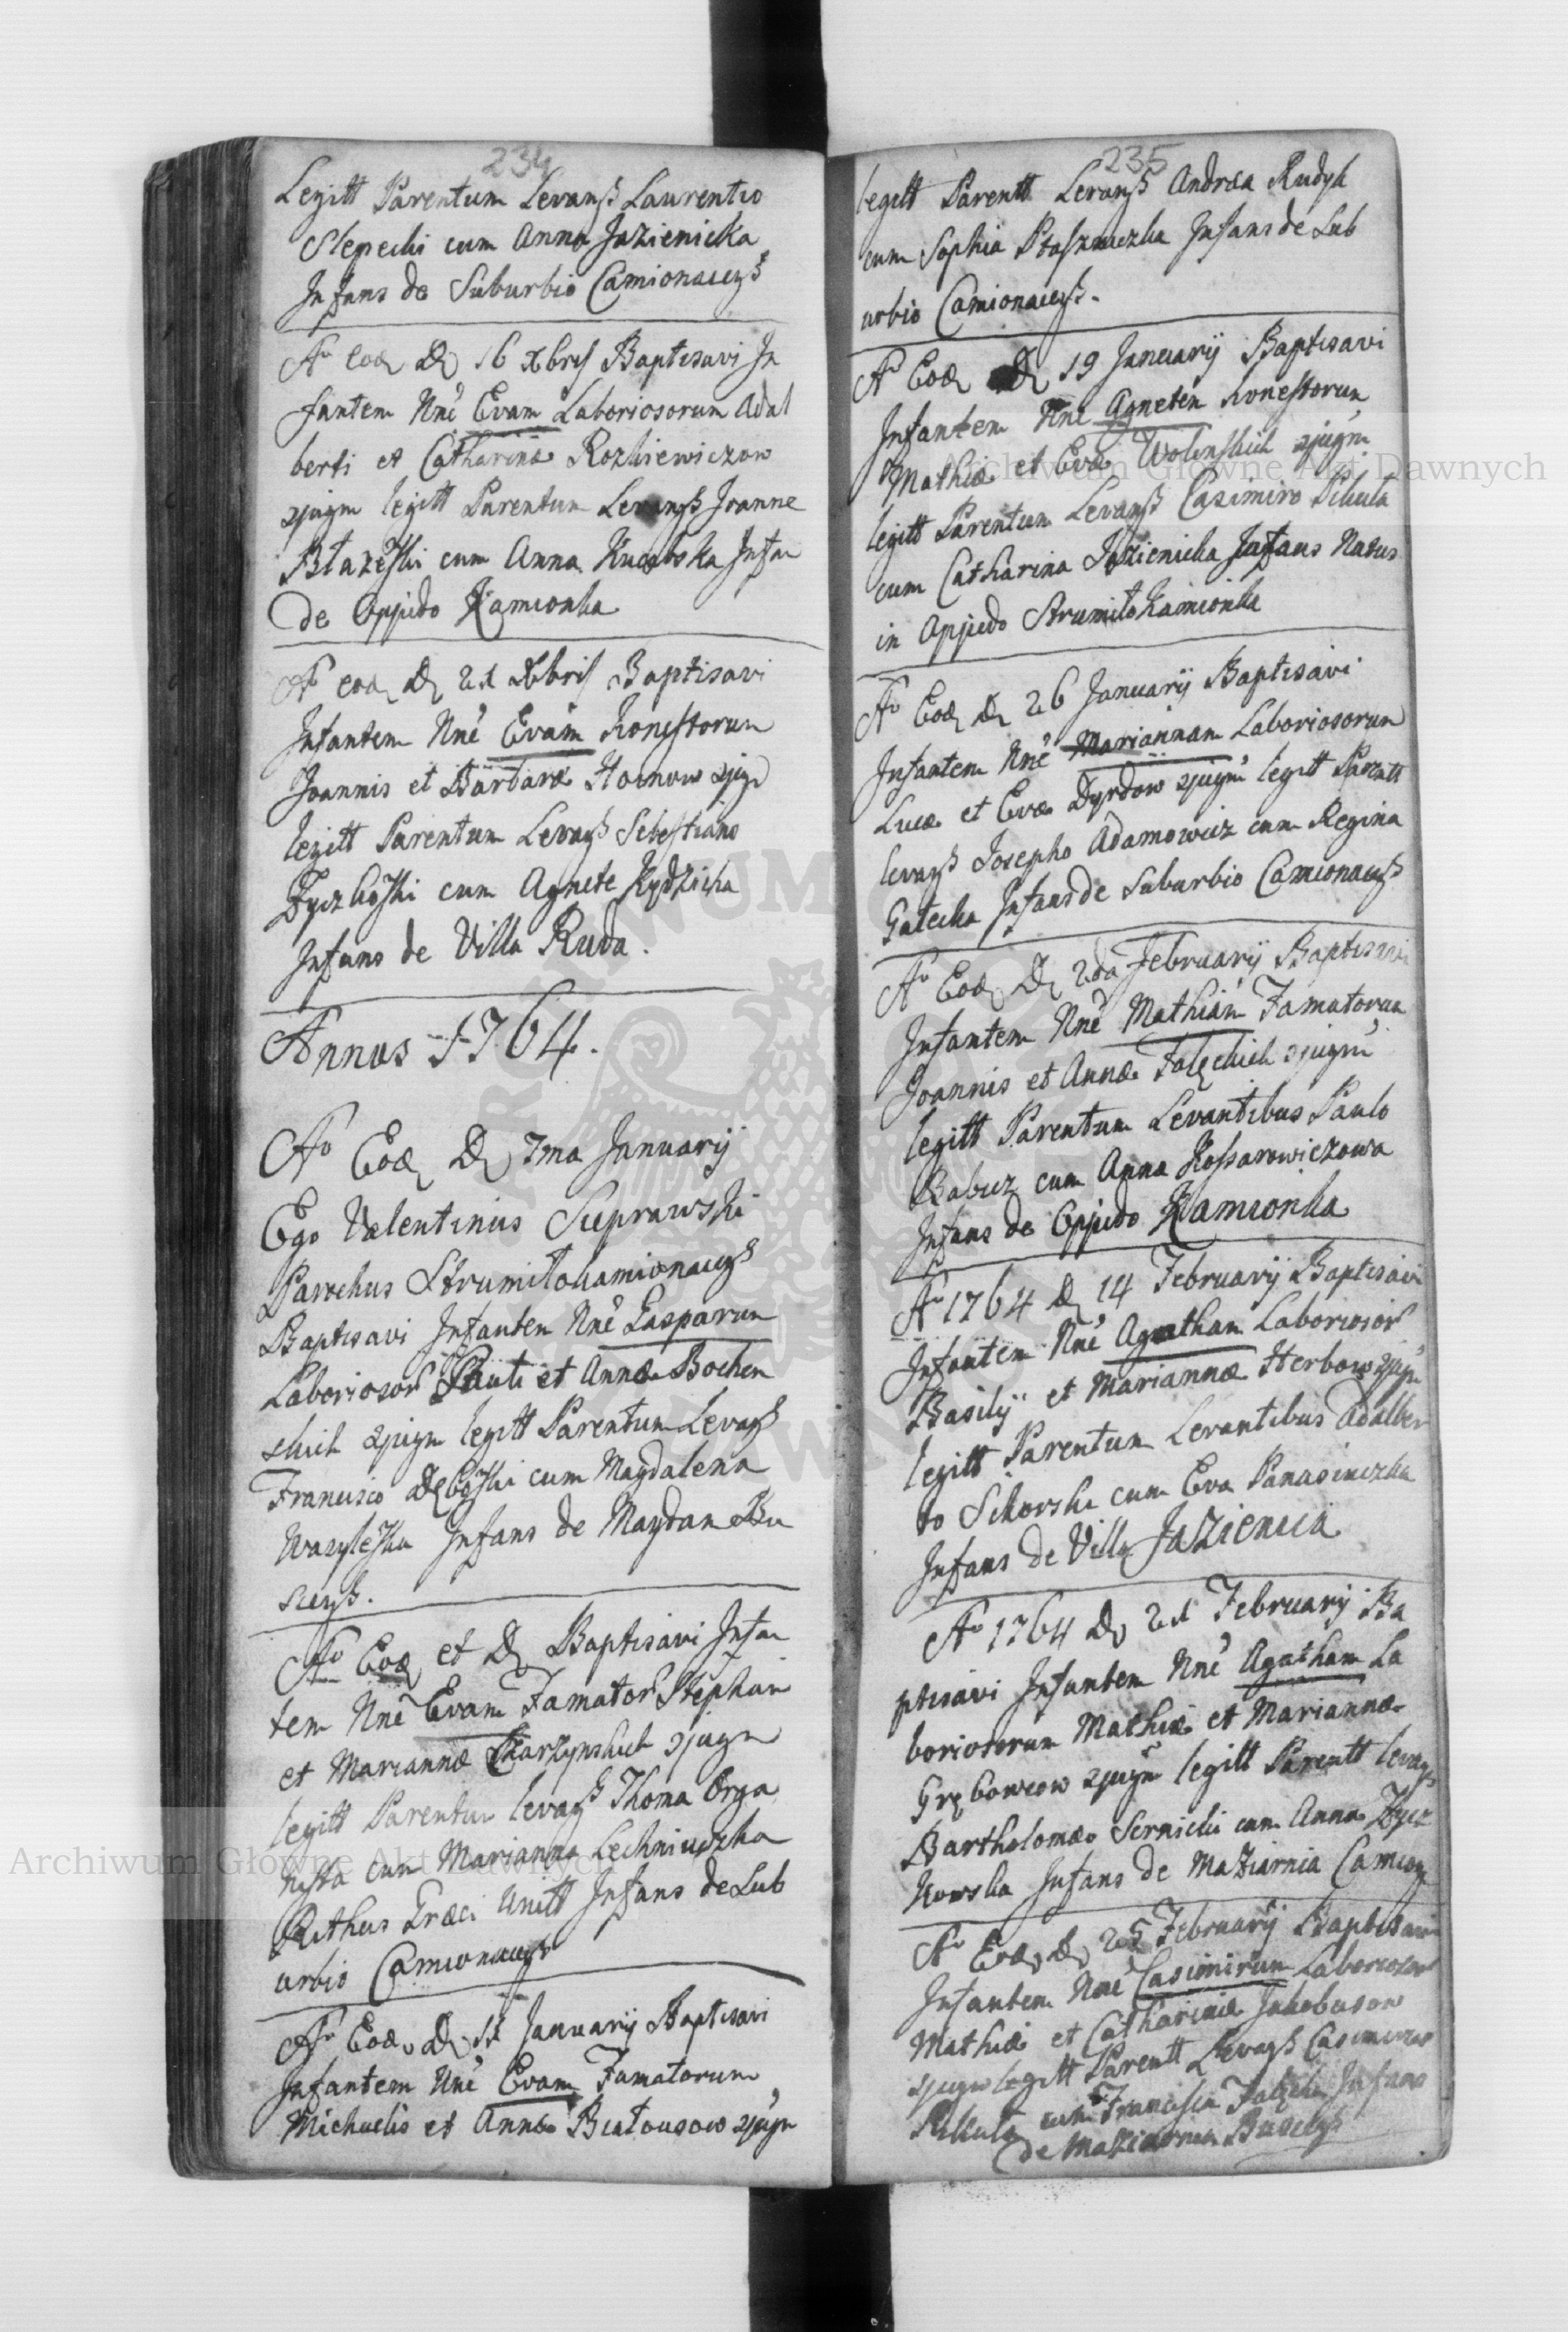 234
Legitt Parentum Levanß Laurentio
Slepecki cum Anna Jazienicka
Infans de Suburbio Camionacẽß
Aº Eod D 16 Xbris Baptisavi In
fantem Nnē Evam Laboriosorum Adal
berti et Catharinæ Rozkiewiczow
legitt Parentum Levanß Joanne
cum Anna Infan
de Oppido Kamionka
Aº eod D 21 Xbris Baptisavi
Infantem Nnē Evam Honestorum
Joannis et Barbaræ
legitt Parentum Levanß Sebestiano
cum Agnete Rydzicka
Infans de Villa Ruda.
Annus 1764.
Aº Eod D 7ma Januarij
Ego Valentinus Sieprawski
Parochus Strumiłokamionacẽß
Baptisavi Infantem Nnē Gasparum
Laborioso Pauli et Annæ Bochen
skich legitt Parentum Levanß
Francisco cum Magdalena
Infans de Maydan Bu
Aº Eod et D Baptisavi Infan
tem Nnē Evam Famator Stephani
et Mariannæ Skarzynskich
legitt Parentum levanß Thoma Orga
nista cum Marianna Lechniuczka
Rithus Græci Unitt Infans de Sub
urbio Camionacẽß
Aº Eod D 11 Januarij Baptisavi
Infantem Nnē Evam Famatorum
Michaelis et Annæ Białousow
235
legitt Parentt Levanß Andræa Rudyk
cum Sophia Ptaszniczka Infans de Sub
urbio Camionacẽß.
Aº Eod D 19 Januarij Baptisavi
Infantem Nnē Agnetem Honestorum
Mathiæ et Evæ Wolenskich
legitt Parentum Levanß Casimiro Pikuła
cum Catharina Jazienicka Infans Natus
in Oppido Strumiło Kamionka
Aº Eod D 26 Januarij Baptisavi
Infantem Nnē Mariannam Laboriosorum
Lucæ et Evæ Dyrdow legitt Parentt
levanß Josepho Adamowicz cum Regina
Gałecka Infans de Suburbio Camionacẽß
Aº Eod D 2da Februarij Baptisavi
Infantem Nnē Mathiam Famatorum
Joannis et Annæ Falęckich
legitt Parentum Levantibus Paulo
Babicz cum Anna Kossarowiczowa
Infans de Oppido Kamionka
Aº 1764 D 14 Februarij Baptisavi
Infantem Nnē Agatham Laborioso
Basilij et Mariannæ Herbow
legitt Parentum Levantibus Adalber
to Sikorski cum Eva Panasiuczka
Infans de Villa Jazienica
Aº 1764 D 21 Februarij Ba
ptisavi Infantem Nnē Agatham La
boriosorum Mathiæ et Mariannæ
Grębowcow legitt Parentt levanß
Bartholomæo Sernicki cum Anna Dycz
kowska Infans de Maziarnia Camion
Aº Eod D 25 Februarij Baptisavi
Infantem Nnē Casimirum Laborioso
Mathiæ et Catharinæ Jakobusow
legitt Parentt Levanß Casimiro
Pikuła cum Francisca Falęcka Infans
de Maziarnia
Archiwum Główne Akt Dawnych